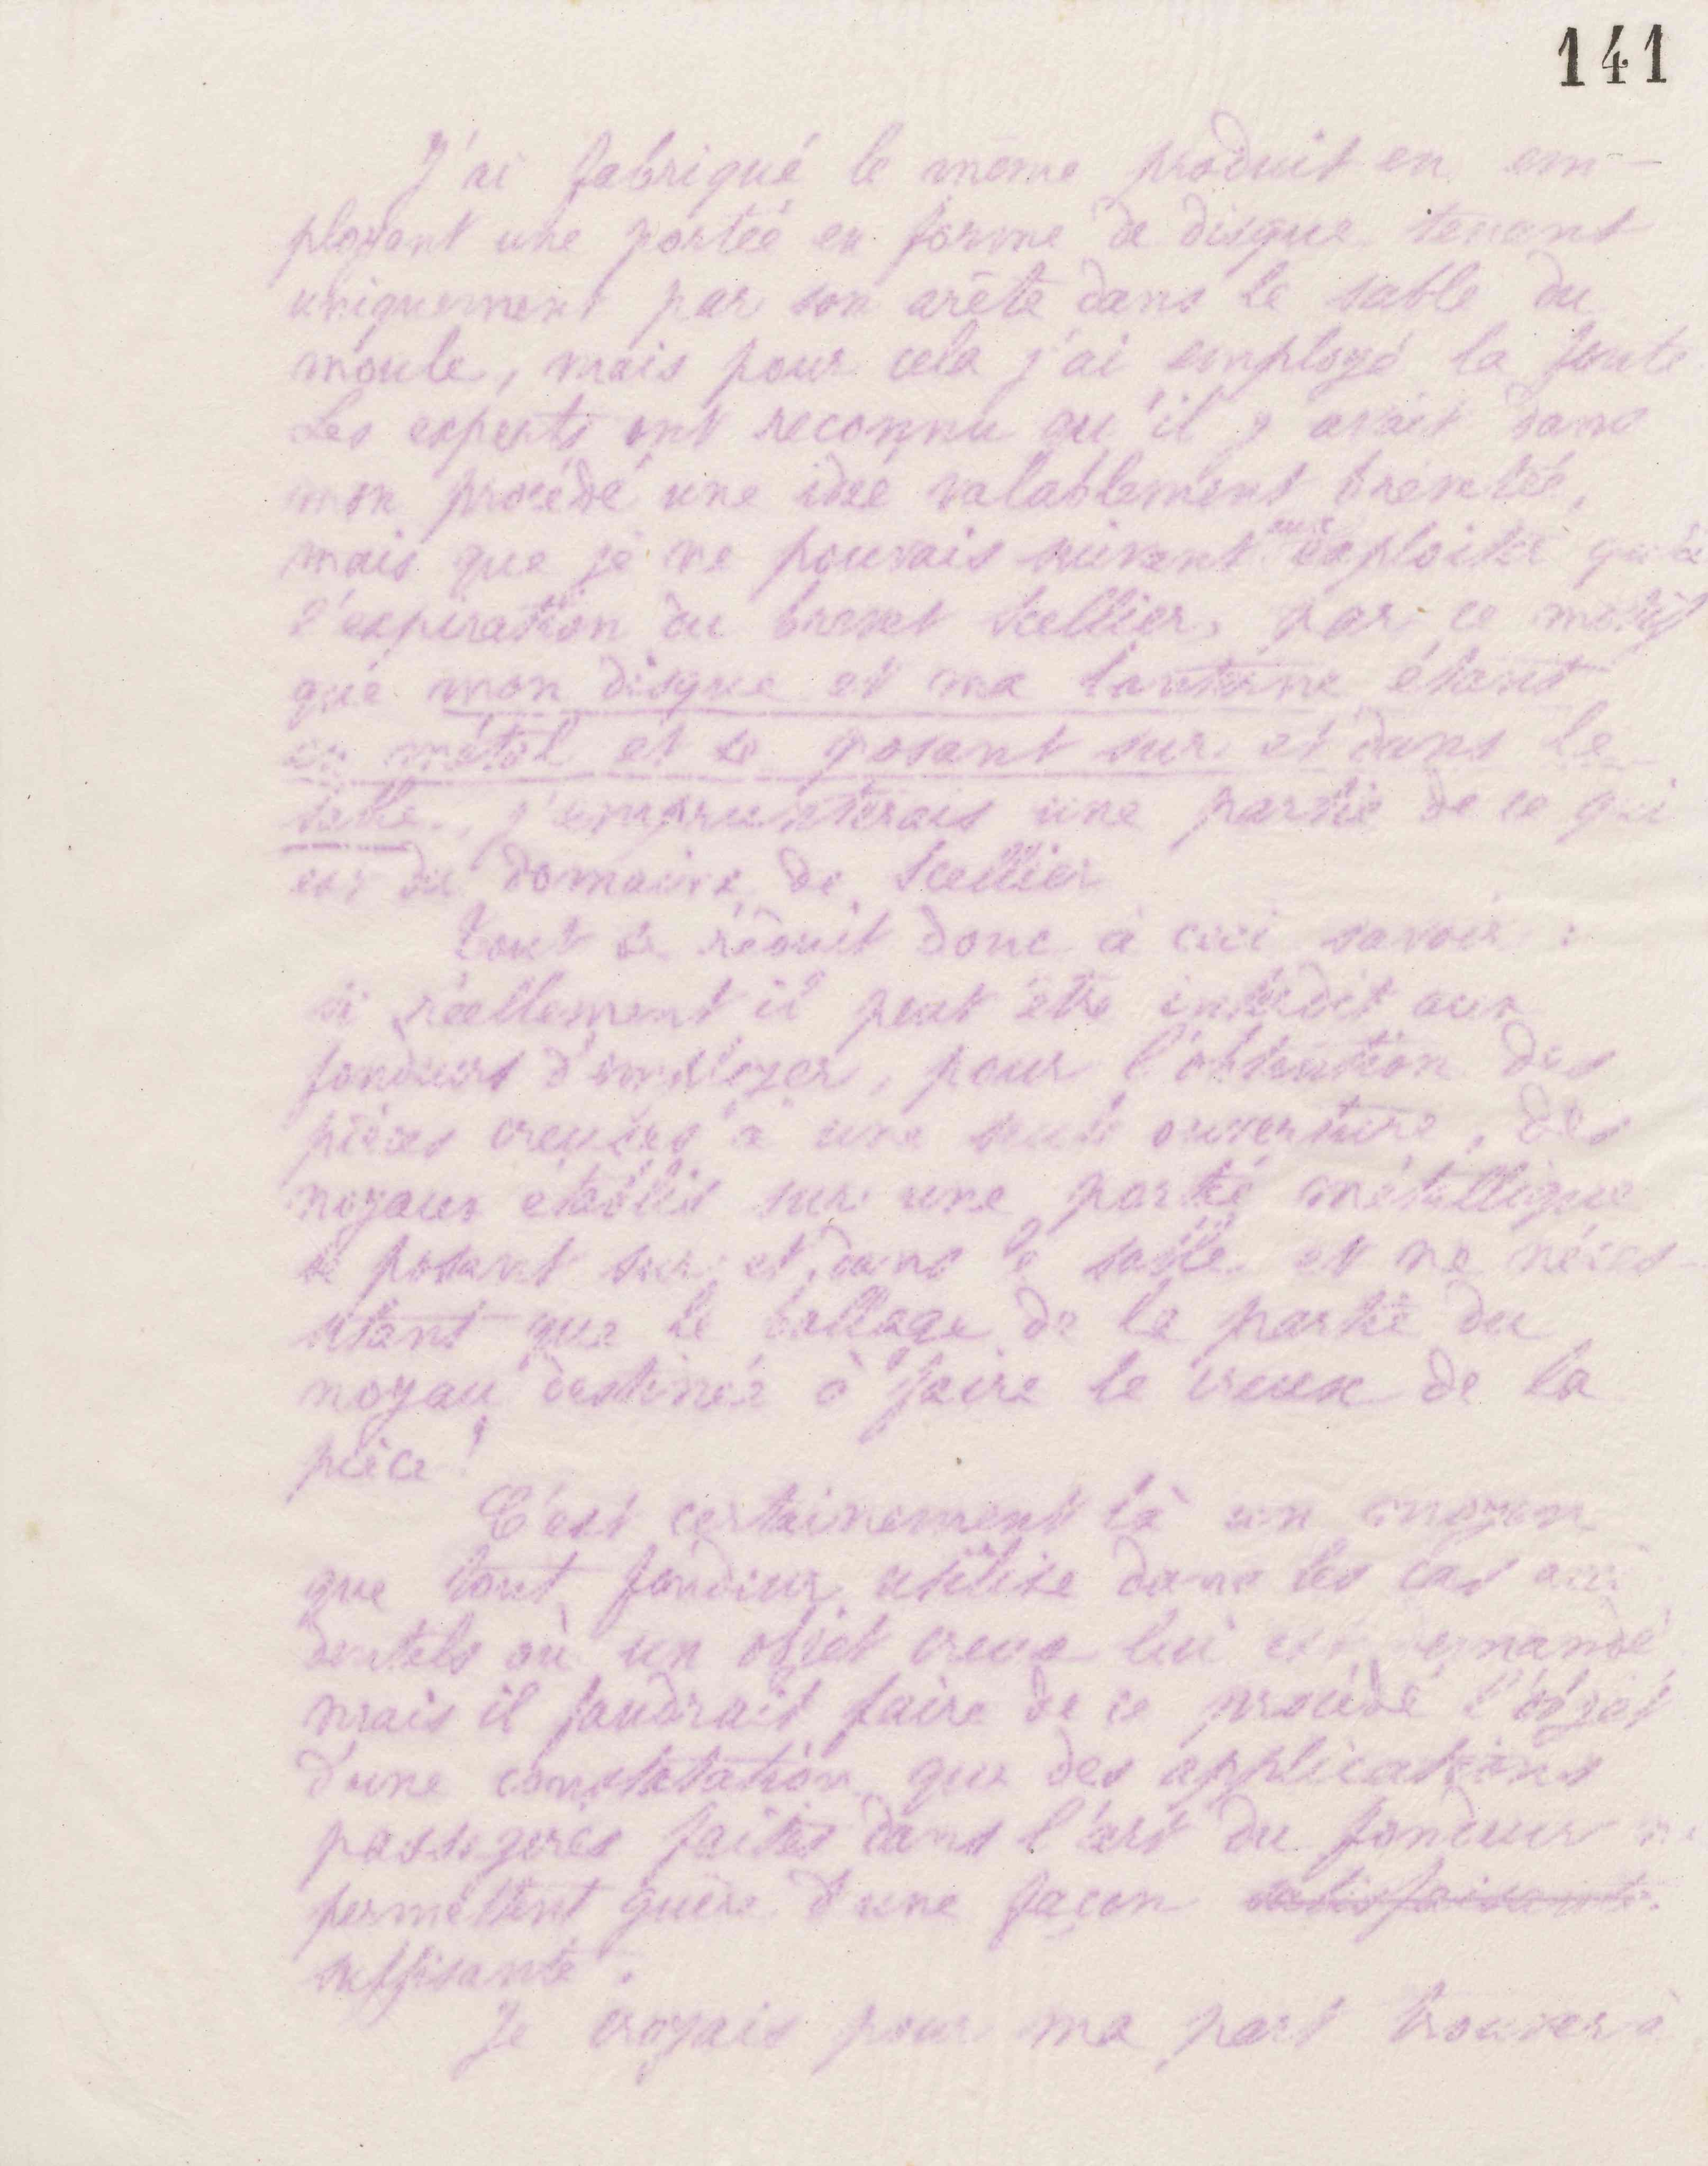 141
J'ai fabriqué le même produit en em-
ployant une portée en forme de disque tenant
uniquement par son arête dans le sable du
moule, mais pour cela j'ai employé la fonte.
Les experts ont reconnu qu'il y avait dans
mon procédé une idée valablement brevetée,
mais que je ne pouvais suivant eux exploiter qu'à
l'expiration du brevet Scellier, par ce motif
que mon disque et ma lanterne étant
en métal et se posant sur et dans le
sable, j'emprunterais une partie de ce qui
est du domaine de Scellier
Tout se réduit donc à ceci savoir :
si réellement il peut être interdit aux
fondeurs d'employer, pour l'obtention des
pièces creuses à une seule ouverture, des
noyaux établis sur une portée métallique
se posant sur et dans le sable et ne néces-
sitant que le ballage de la partie du
noyau destinée à faire le creux de la
pièce !
C'est certainement là un moyen
que tout fondeur utilise dans les cas acci
dentels où un objet creux lui est demandé
mais il faudrait faire de ce procédé l'objet
d'une constatation que des applications
passagères faites dans l'art du fondeur ne
permettent guère d'une façon satisfaisante.
suffisante.
Je croyais pour ma part trouver à